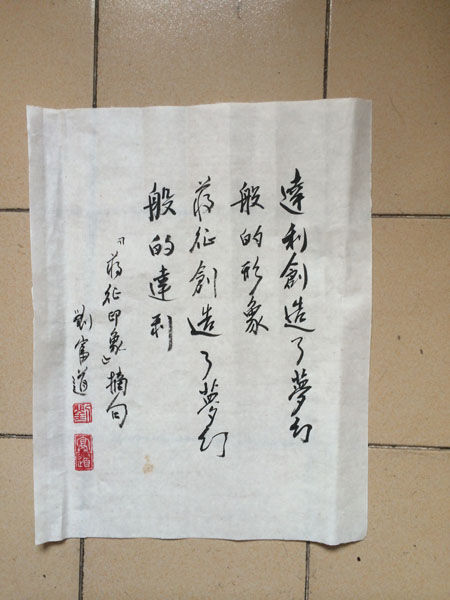 達利創造了夢幻
般的形象
蔣征創造了夢幻
般的達利
『蔣征印象』摘句
劉富道
劉
富道